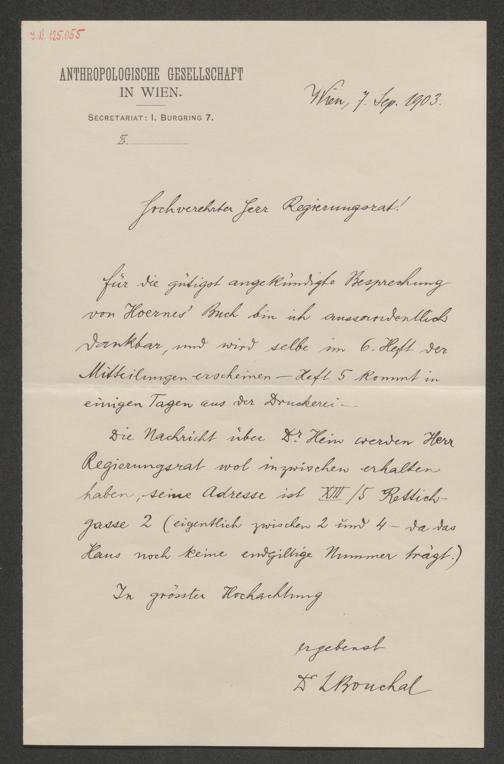 I.N. 125.055
ANTHROPOLOGISCHE GESELLSCHAFT
IN WIEN.
SECRETARIAT: I. BURGRING 7.
Z.
Wien, 7. Sep. 1903.
Hochverehrter Herr Regierungsrat!
Für die gütigst angekündigte Besprechung
von Hoernes' Buch bin ich ausserordentlich
dankbar, und wird selbe im 6. Heft der
Mitteilungen erscheinen – Heft 5 kommt in
einigen Tagen aus der Druckerei –
Die Nachricht über Dr. Hein werden Herr
Regierungsrat wol inzwischen erhalten
haben, seine Adresse ist XIII/5 Rettich-
gasse 2 (eigentlich zwischen 2 und 4 – da das
Haus noch keine endgiltige Nummer trägt.)
In grösster Hochachtung
ergebenst
Dr LBouchal